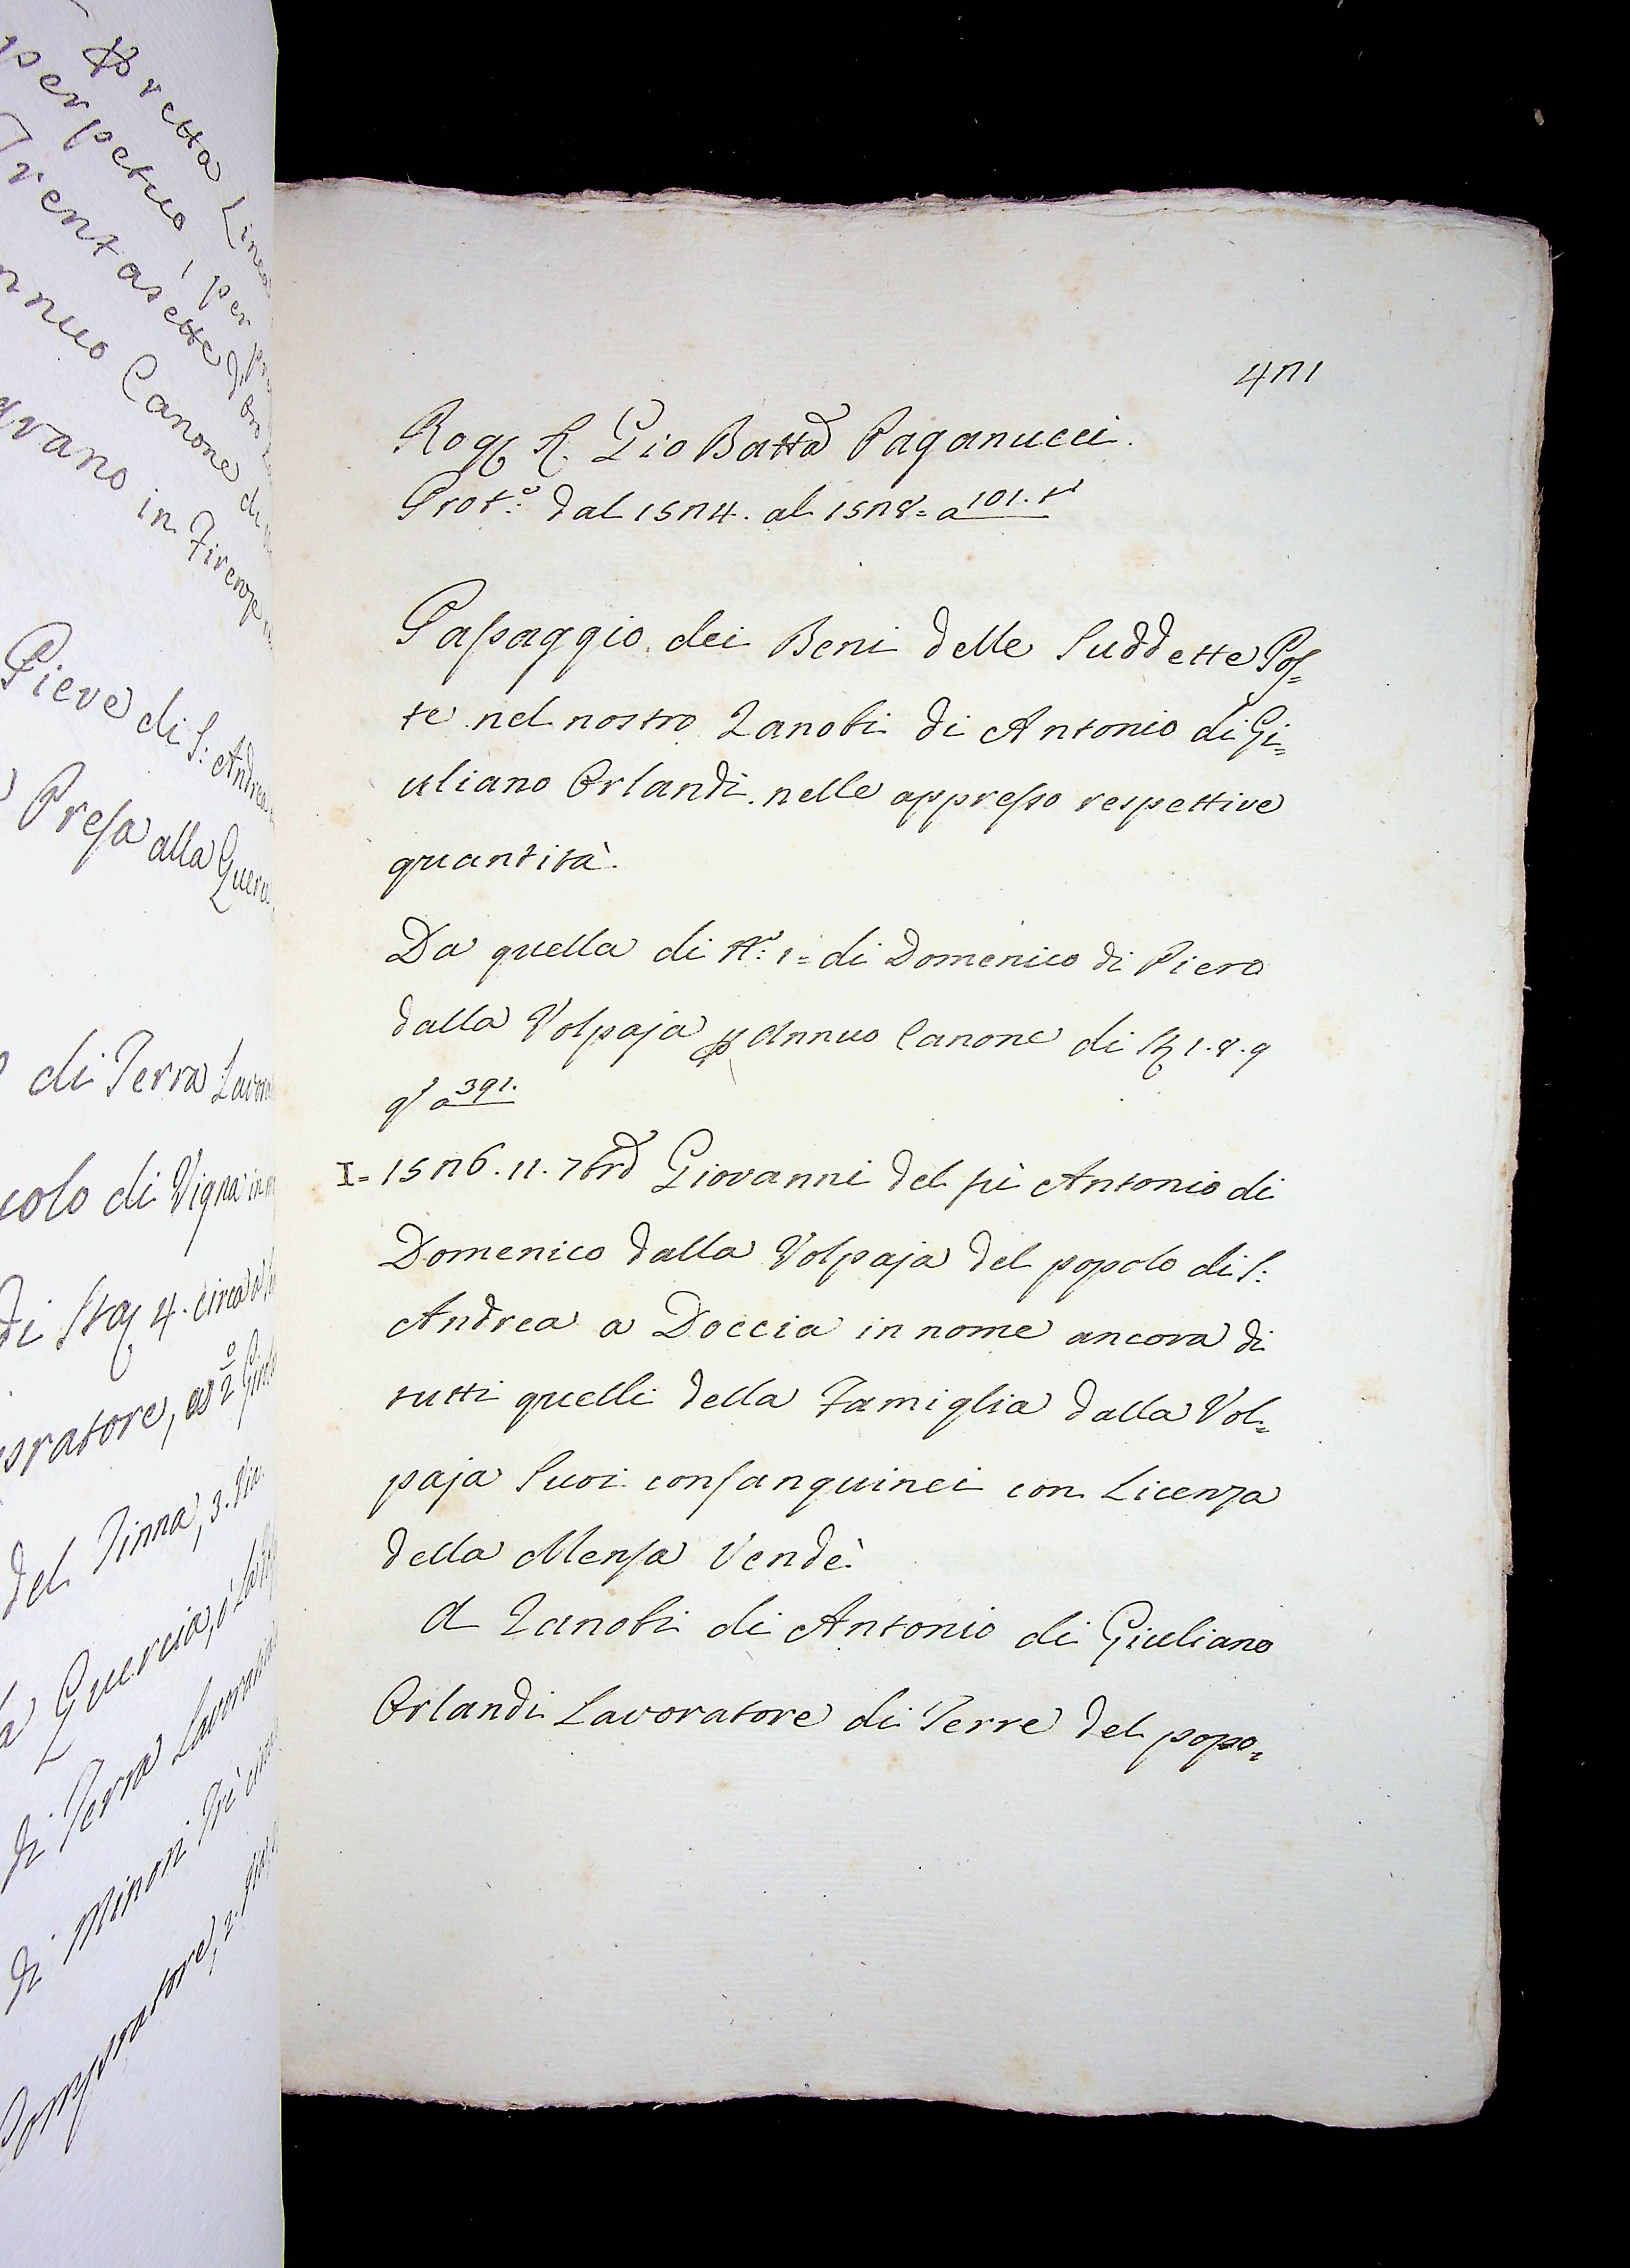 retta Linea
perpetuo, per
Trentasette
nnuo Canone di
in Firenze
Pieve di S: Andrea
Presa alla Querc
di Terra Lavora
colo di Vigna in
di Stai 4. circa a
ratore, a 2
del Zinna, 3. Via
Quercia, ò
di Terra Lavorat
di minori Trè
Comparatore, 2.
471
Rog. S. Gio Batta Paganucci.
Prot.º dal 1574. al 1578= a 101. tº
Passaggio dei Beni delle Suddette Pos=
te nel nostro Zanobi di Antonio di Gi=
uliano Orlandi nelle appresso respettive
quantità.
Da quella di Nº: 1= di Domenico di Piero
dalla Volpaja p Annuo Canone di 1.8.9
qº a 391.
I= 1576. 11. 7bre Giovanni del fù Antonio di
Domenico dalla Volpaja del popolo di S:
Andrea a Doccia in nome ancora di
tutti quelli della Famiglia dalla Vol=
paja Suoi consanguinei con Licenza
della Mensa Vendè.
A Zanobi di Antonio di Giuliano
Orlandi Lavoratore di Terre del popo=